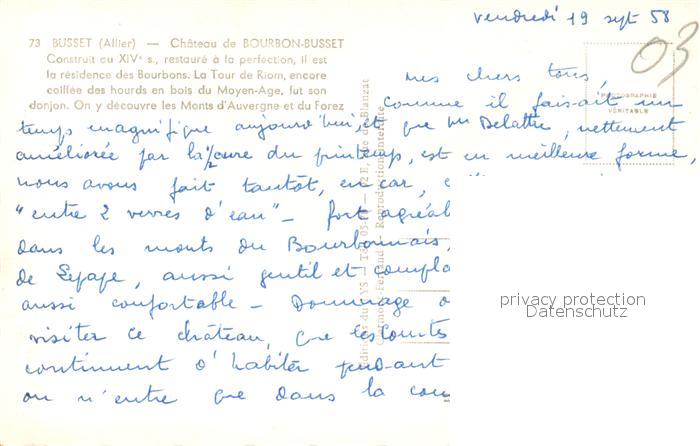 vendredi 19 sept 58
03
73 BUSSET (Allier) — Château de BOURBON-BUSSET
Construit au XIVe s., restauré à la perfection, il est
la résidence des Bourbons. La Tour de Riom, encore
coiffée des hourds en bois du Moyen-Age, fut son
donjon. On y découvre les Monts d'Auvergne et du Forez
PHOTOGRAPHIE
VÉRITABLE
mes chers tous,
comme il faisait un
temps magnifique aujourd'hui, et que Mr Delattre, nettement
améliorée par la 1/2 cure du printemps, est en meilleure forme,
nous avons fait tantôt, en car,
"entre 2 verres d'eau" – fort agréab
dans les monts du Bourbonnais,
de Lepape, aussi gentil et compla
aussi confortable – Dommage
visiter ce château, que les Comtes
continuent d'habiter pendant
on n'entre que dans la cou
privacy protection
Datenschutz